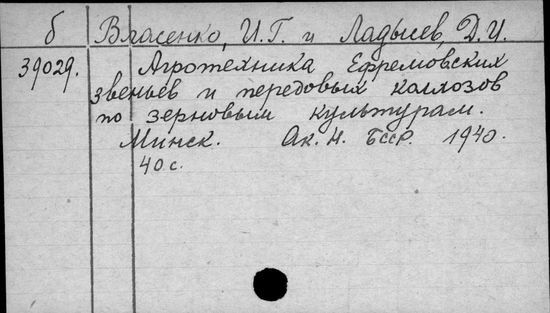 б Власенко, И.Г. и Ладысев, Д.И.
39029. Агротехника Ефремовских
звеньев и передовых колхозов
по зерновым культурам.
Минск. Ак. Н. БССР. 1940.
40 с.